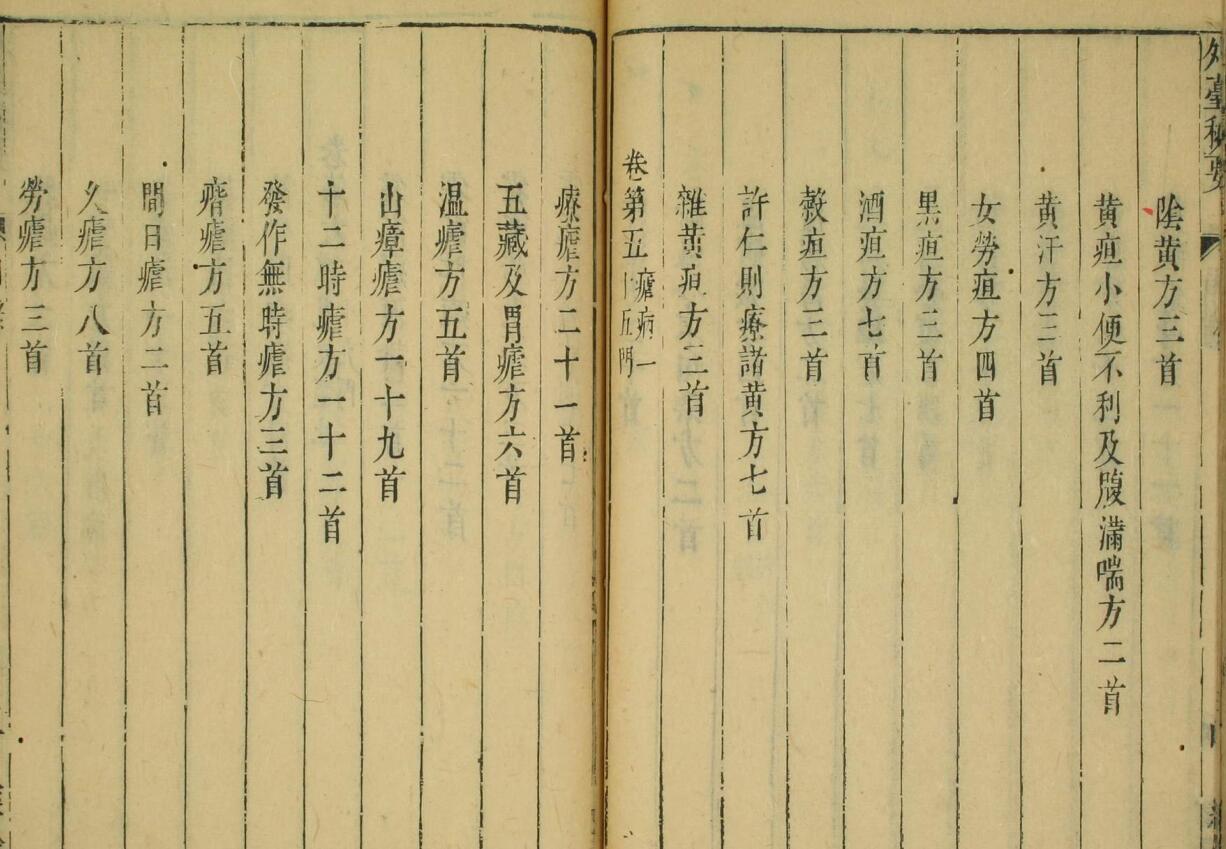 外臺秘要
陰黄方三首
黄疸小便不利及腹滿喘方二首
黄汗方三首
女勞疸方四首
黒疸方三首
酒疸方七首
穀疸方三首
許仁則療諸黄方七首
雜黄疸方三首
卷第五瘧病一十五門
療瘧方二十一首
五藏及胃瘧方六首
温瘧方五首
山瘴瘧方一十九首
十二時瘧方一十二首
發作無時瘧方三首
痟瘧方五首
間日瘧方二首
久瘧方八首
勞瘧方三首